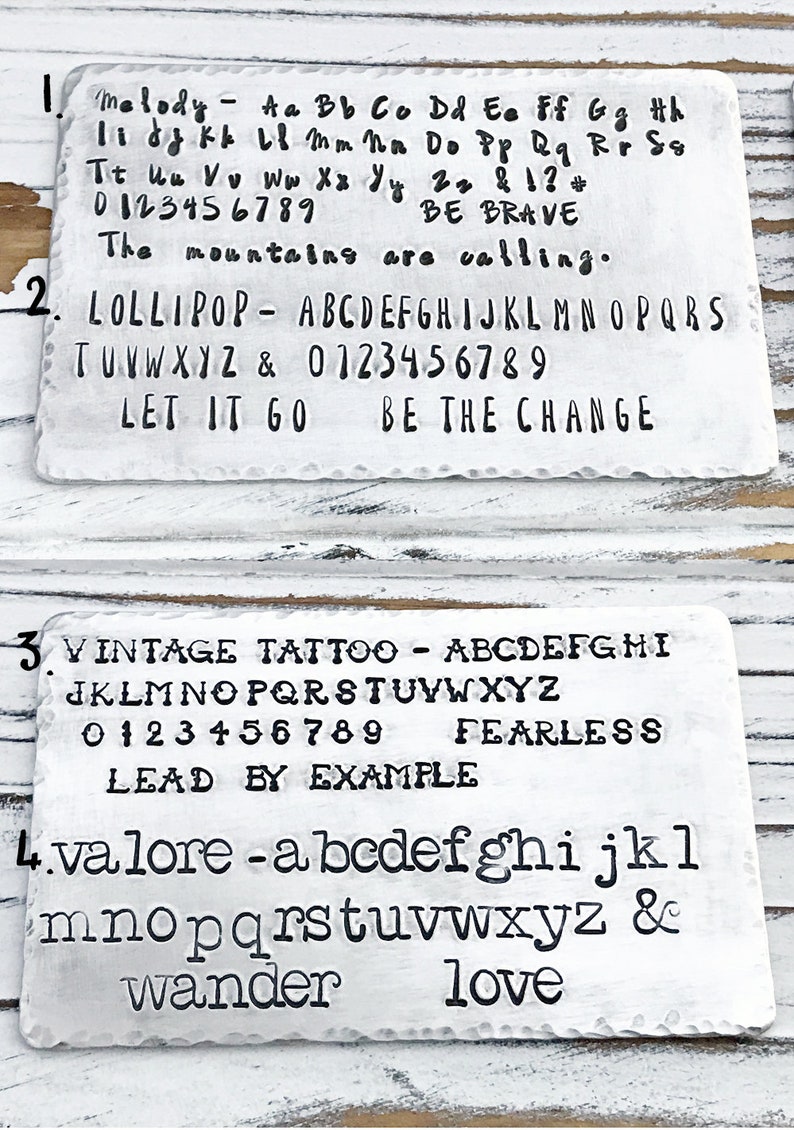 1. Melody - Aa Bb Cc Dd Ee Ff Gg Hh
Ii Jj Kk Ll Mm Nn Oo Pp Qq Rr Ss
Tt Uu Vv Ww Xx Yy Zz & ! ? #
0 1 2 3 4 5 6 7 8 9 BE BRAVE
The mountains are calling.
2. LOLLIPOP - ABCDEFGHIJKLMNOPQRS
TUVWXYZ & 0123456789
LET IT GO BE THE CHANGE
3. VINTAGE TATTOO - ABCDEFGHI
JKLMNOPQRSTUVWXYZ
0 1 2 3 4 5 6 7 8 9 FEARLESS
LEAD BY EXAMPLE
4. valore - abcdefghijkl
mnopqrstuvwxyz &
wander love